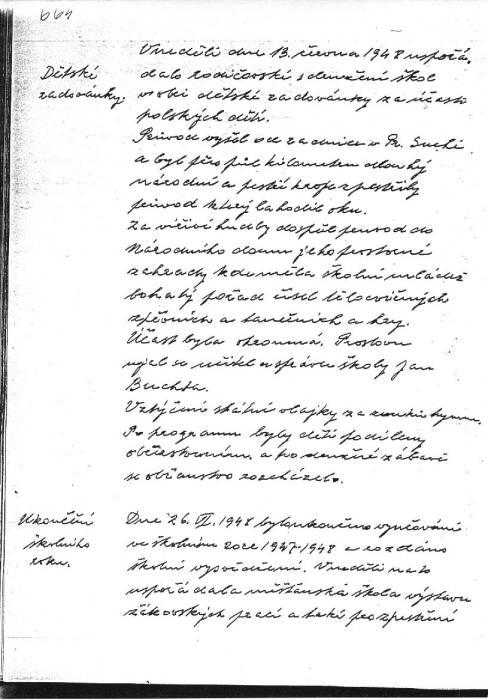 664
Dětské
radovánky.
V neděli dne 13. června 1948 uspořá-
dalo rodičovské sdružení škol
v obci dětské radovánky za účasti
polských dětí.
Průvod vyšel od radnice v Pr. Suché
a byl přes půl kilometru dlouhý
národní a pestré kroje zpestřily
průvod který lahodil oku.
Za víření hudby dospěl průvod do
Národního domu jeho prostorné
zahrady kde měla školní mládež
bohatý pořad čísel tělocvičných
zpěvních a tanečních a hry.
Účast byla ohromná. Proslovu
ujal se učitel a správce školy Jan
Buchta.
Vztyčení státní vlajky za zvuků hymn.
Po programu byly děti poděleny
občerstvením, a po družné zábavě
se občanstvo rozcházelo.
Ukončení
školního
roku.
Dne 26. VI. 1948 bylo ukončeno vyučování
ve školním roce 1947-1948 a rozdáno
školní vysvědčení. V neděli na to
uspořádala měšťanská škola výstavu
žákovských prací a také pro zpestření